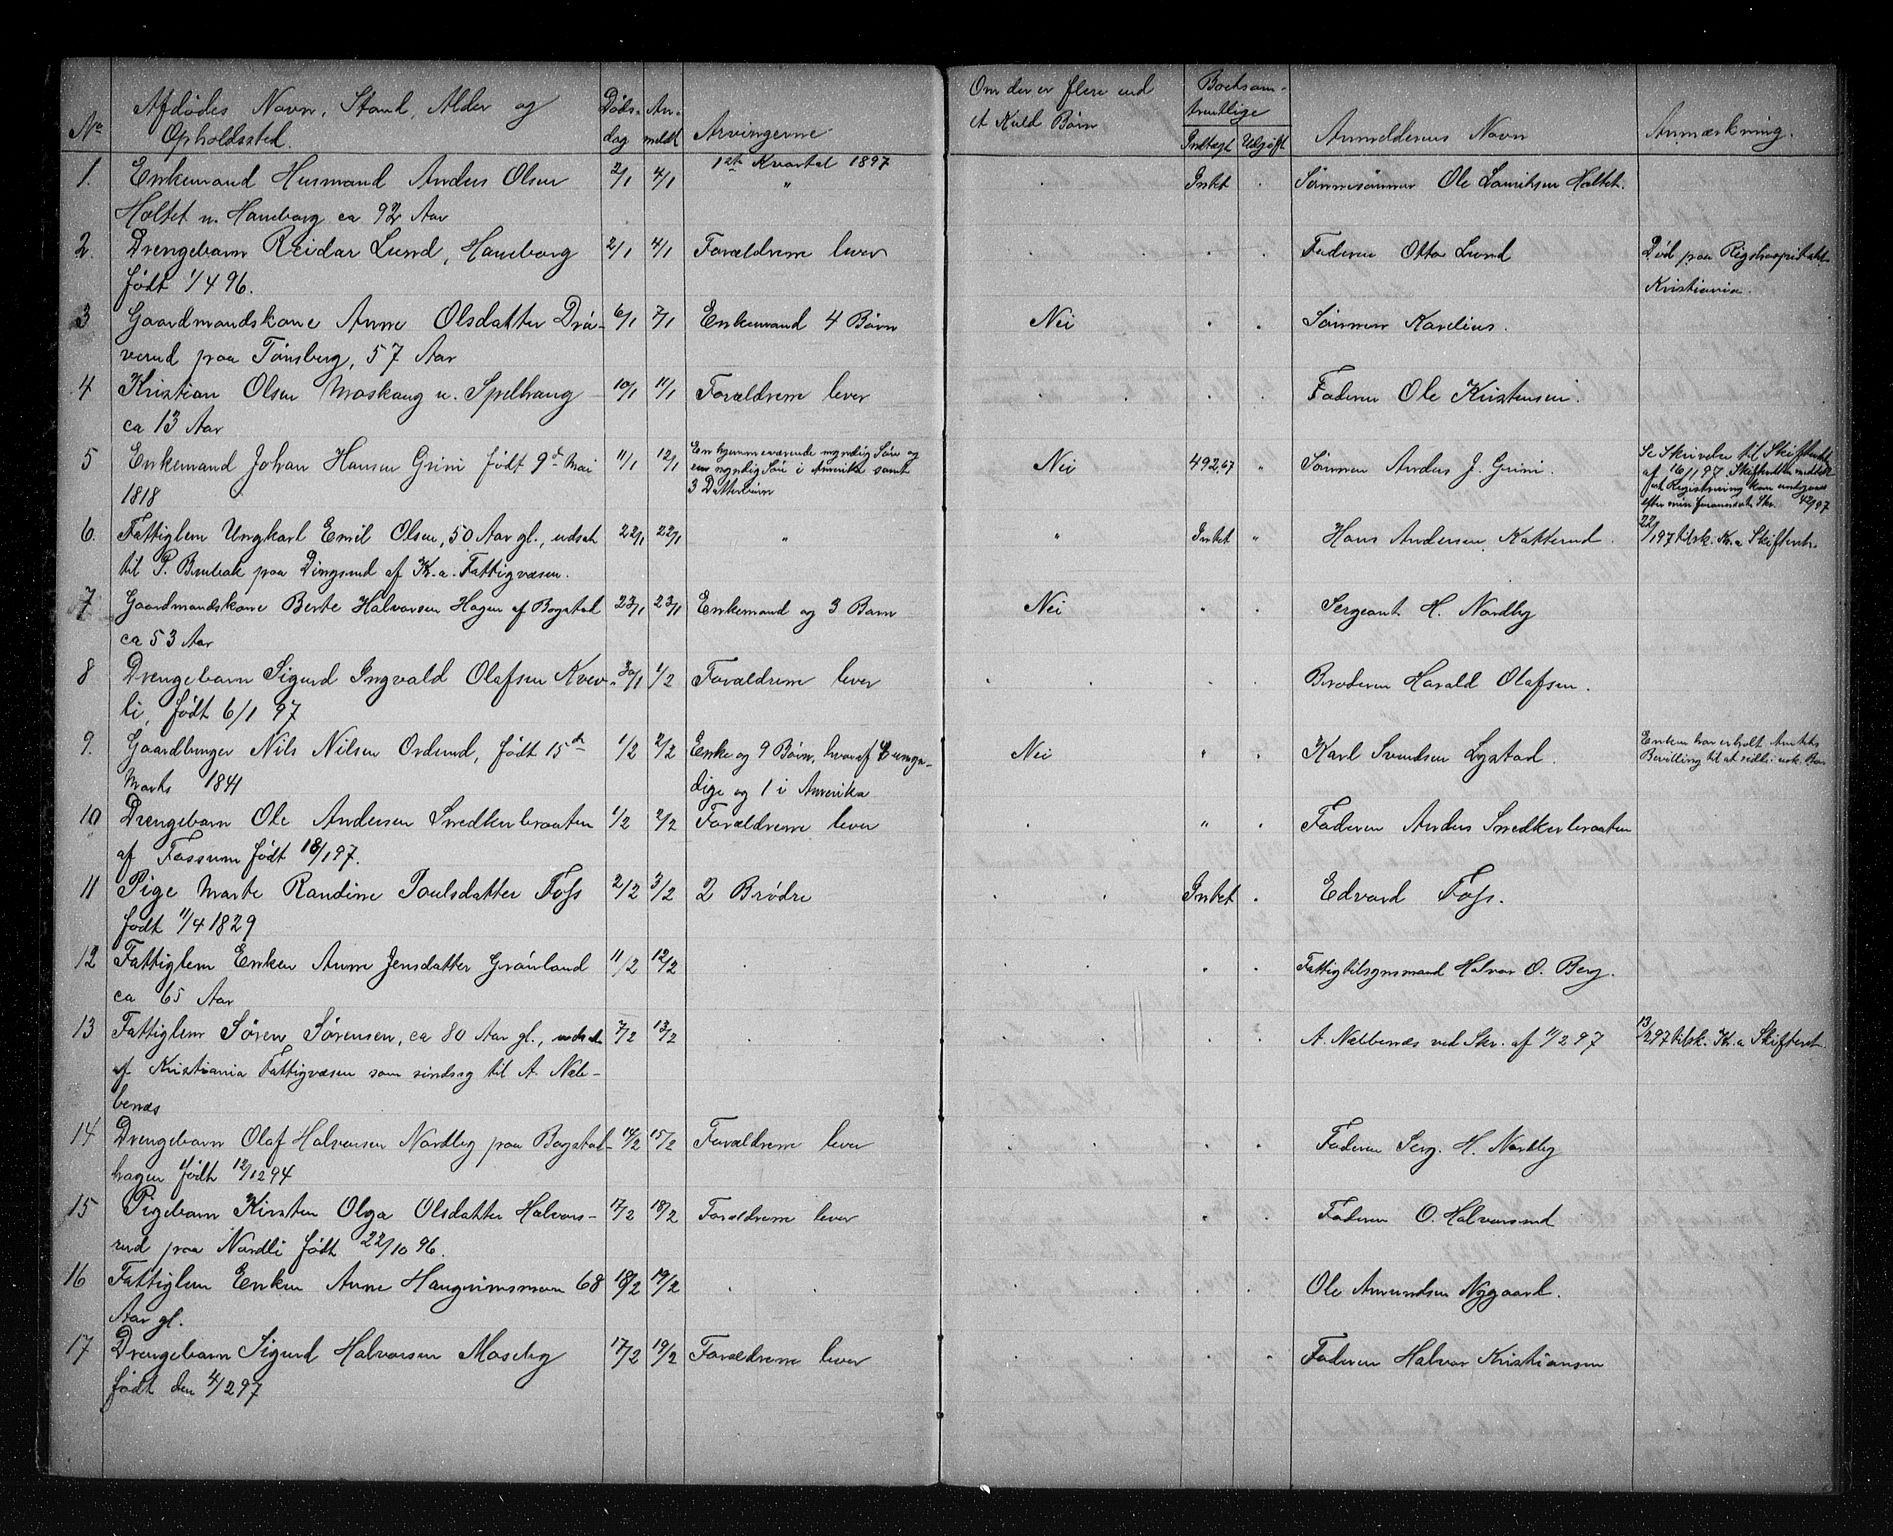 No
Afdødes Navn, Stand, Alder og
Opholdssted.
Døds-
dag
An-
meldt
Arvingerne
Om der er flere end
et Kuld Børn
Boets am-
Indtægt Udgift
Anmelderens Navn
Anmærkning.
1st Kvartal 1897
1. Enkemand Husmand Anders Olsen 2/1 4/1 " Intet Sønnesønnen Ole Lauritsen Holtet.
Holtet u. Haneborg ca 92 Aar
2. Drengebarn Reidar Lund, Haneborg 2/1 4/1 Forældrene lever Faderen Otto Lund Død paa Rigshospitalet
født 1/4 96. Kristiania.
3 Gaardmandskone Anne Olsdatter Drø- 6/1 7/1 Enkemand 4 Børn Nei Sønnen Karelius.
verud paa Tønsberg, 57 Aar
4 Kristian Olsen Moskaug u. Spelhaug 10/1 11/1 Forældrene lever Faderen Ole Kristensen.
ca 13 Aar
5 Enkemand Johan Hansen Grini født 9de Mai 11/1 12/1 En hjemmeværende myndig Søn og
en myndig Søn i Amerika samt
3 Datterbørn
Nei 492,67 " Sønnen Anders J. Grini. Se Skrivelse til Skifteretten
af 16/1 97. Skifteretten
Registrering kan undgaaes
efter min Skr. 4/2 97
1818
6. Fattiglem Ungkarl Emil Olsen, 50 Aar gl., udsat 22/1 22/1 " " Intet " Hans Andersen Katterud. 22/1 97 tilsk. Kr.a Skifteret.
til P. Brubak paa Dingsrud af Kr.a. Fattigvæsen.
7. Gaardmandskone Berte Halvorsen Hagen af Bogstad 23/1 23/1 Enkemand og 3 Barn Nei Sergeant H. Nordby
ca 53 Aar
8 Drengebarn Sigurd Ingvald Olafsen Kver- 30/1 1/2 Forældrene lever Broderen Harald Olafsen.
li, født 6/1 97
9. Gaardbruger Nils Nilsen Ordsund, født 15de 1/2 2/2 Enke og 9 Børn, hvoraf umyn- Nei " Karl Svendsen Lystad. Enken har erholdt Amtets
Marts 1841 dige og 1 i Amerika Bevilling til at sidde i usk. Bo
10 Drengebarn Ole Andersen Snedkerbraaten 1/2 2/2 Forældrene lever " Faderen Anders Snedkerbraaten
af Fossum født 18/1 97.
11 Pige Marte Randine Poulsdatter Foss 2/2 3/2 2 Brødre Intet Edvard Foss.
født 11/4 1829
12 Fattiglem Enken Anne Jensdatter Grønland 11/2 12/2 Fattigtilsynsmand Halvor O. Berg.
ca 65 Aar
13 Fattiglem Søren Sørensen, ca 80 Aar gl., udsat 7/2 13/2 A. Nælbenæs ved Skr. af 11/2 97 13/2 97 tilsk. Kr.a Skifteret.
af Kristiania Fattigvæsen som sindssg til A. Næl-
benæs
14 Drengebarn Olaf Halvorsen Nordby paa Bogstad- 14/2 15/2 Forældrene lever Faderen Serg. H. Nordby
hagen født 12/12 94
15 Pigebarn Kirsten Olga Olsdatter Halvors- 17/2 18/2 Forældrene lever Faderen O. Halvorsrud
rud paa Nordli født 22/10 96.
16 Fattiglem Enken Anne Haugrimsmoen 68 18/2 19/2 Ole Amundsen Nygaard.
Aar gl.
17 Drengebarn Sigurd Halvorsen Moseby 17/2 19/2 Forældrene lever Faderen Halvor Kristiansen
født den 4/2 97